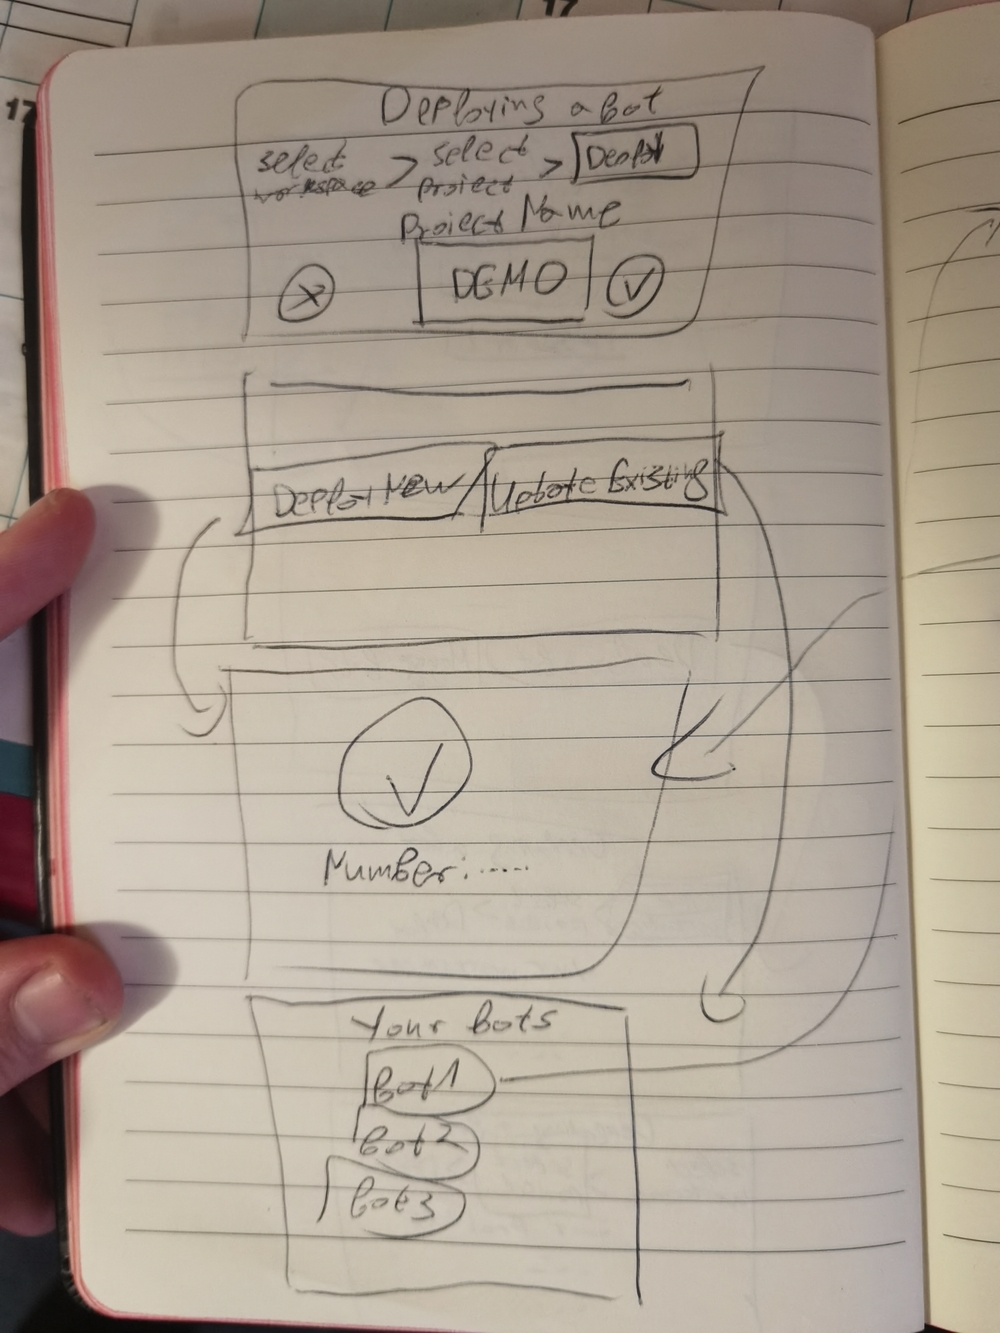 17
17
Deploying a bot
select workspace > select project > Deploy
Project Name
DEMO
Deploy New / Update Existing
Number:......
Your bots
Bot1
Bot2
Bot3